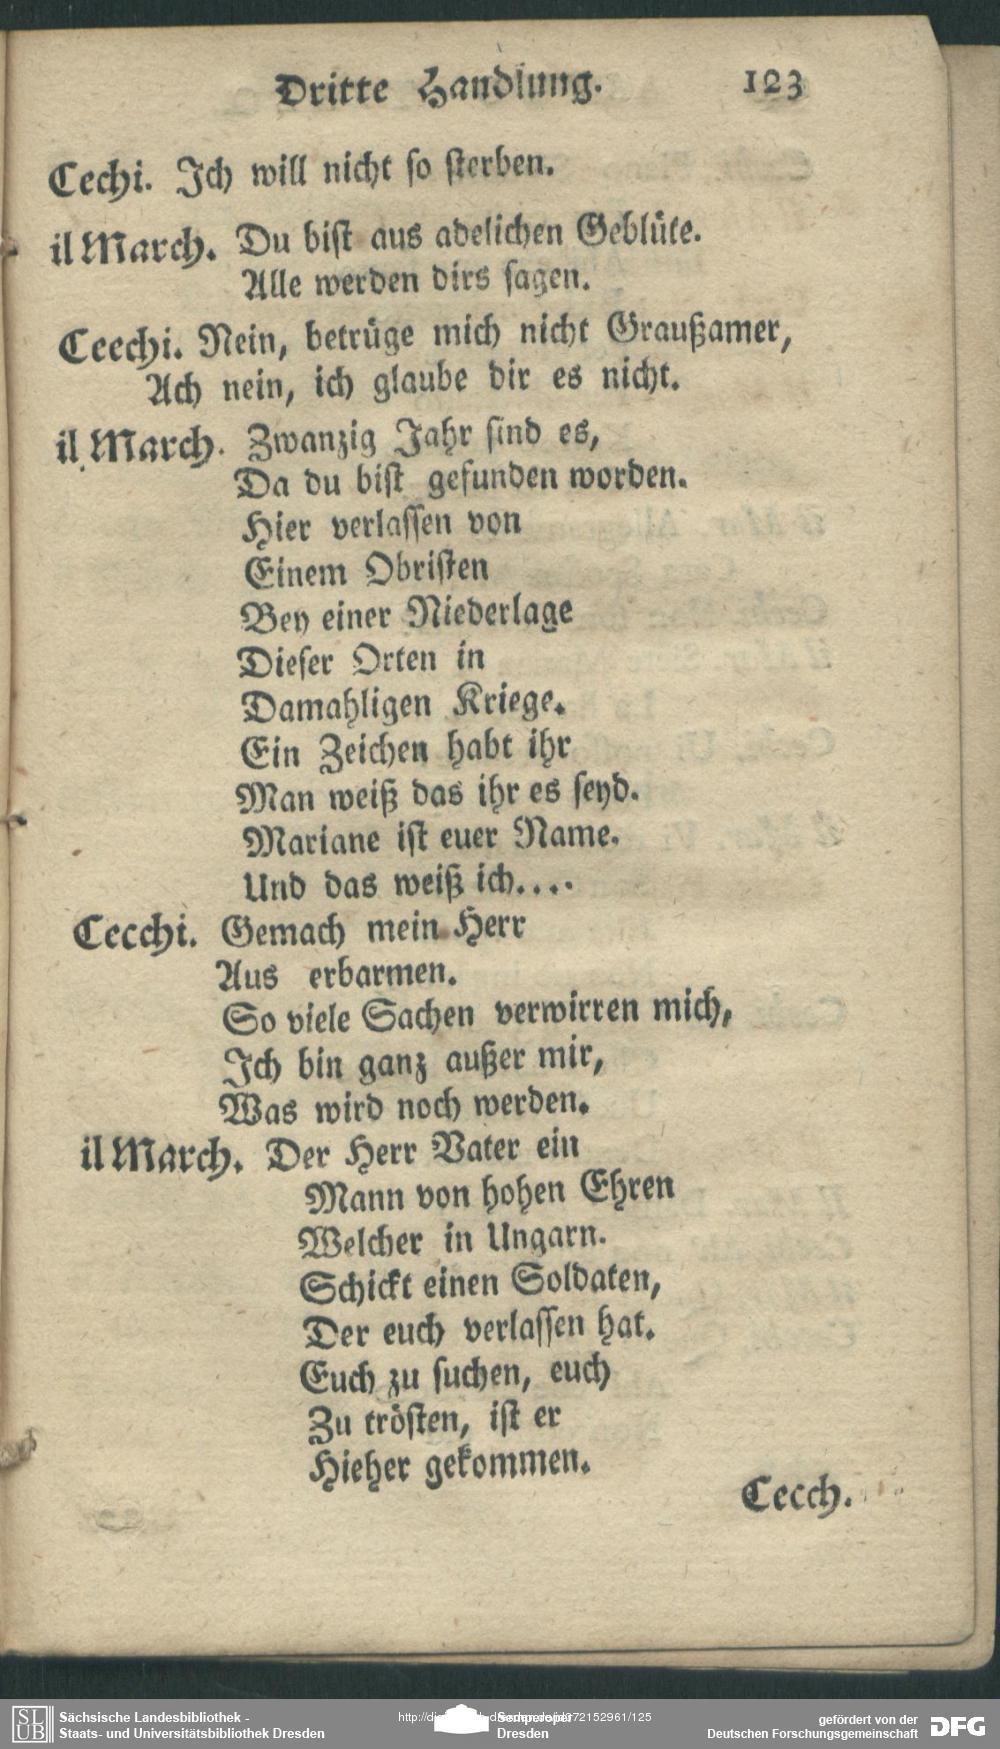 Dritte Handlung. 123
Cechi. Ich will nicht so sterben.
il March. Du bist aus adelichen Geblüte.
Alle werden dirs sagen.
Ceechi. Nein, betrüge mich nicht Graußamer,
Ach nein, ich glaube dir es nicht.
il March. Zwanzig Jahr sind es,
Da du bist gefunden worden.
Hier verlassen von
Einem Obristen
Bey einer Niederlage
Dieser Orten in
Damahligen Kriege.
Ein Zeichen habt ihr
Man weiß das ihr es seyd.
Mariane ist euer Name.
Und das weiß ich....
Cecchi. Gemach mein Herr
Aus erbarmen.
So viele Sachen verwirren mich,
Ich bin ganz außer mir,
Was wird noch werden.
il March. Der Herr Vater ein
Mann von hohen Ehren
Welcher in Ungarn.
Schickt einen Soldaten,
Der euch verlassen hat.
Euch zu suchen, euch
Zu trösten, ist er
Hieher gekommen.
Cecch.
SLUB
Sächsische Landesbibliothek -
Staats- und Universitätsbibliothek Dresden
Semperoper
Dresden
gefördert von der
Deutschen Forschungsgemeinschaft
DFG